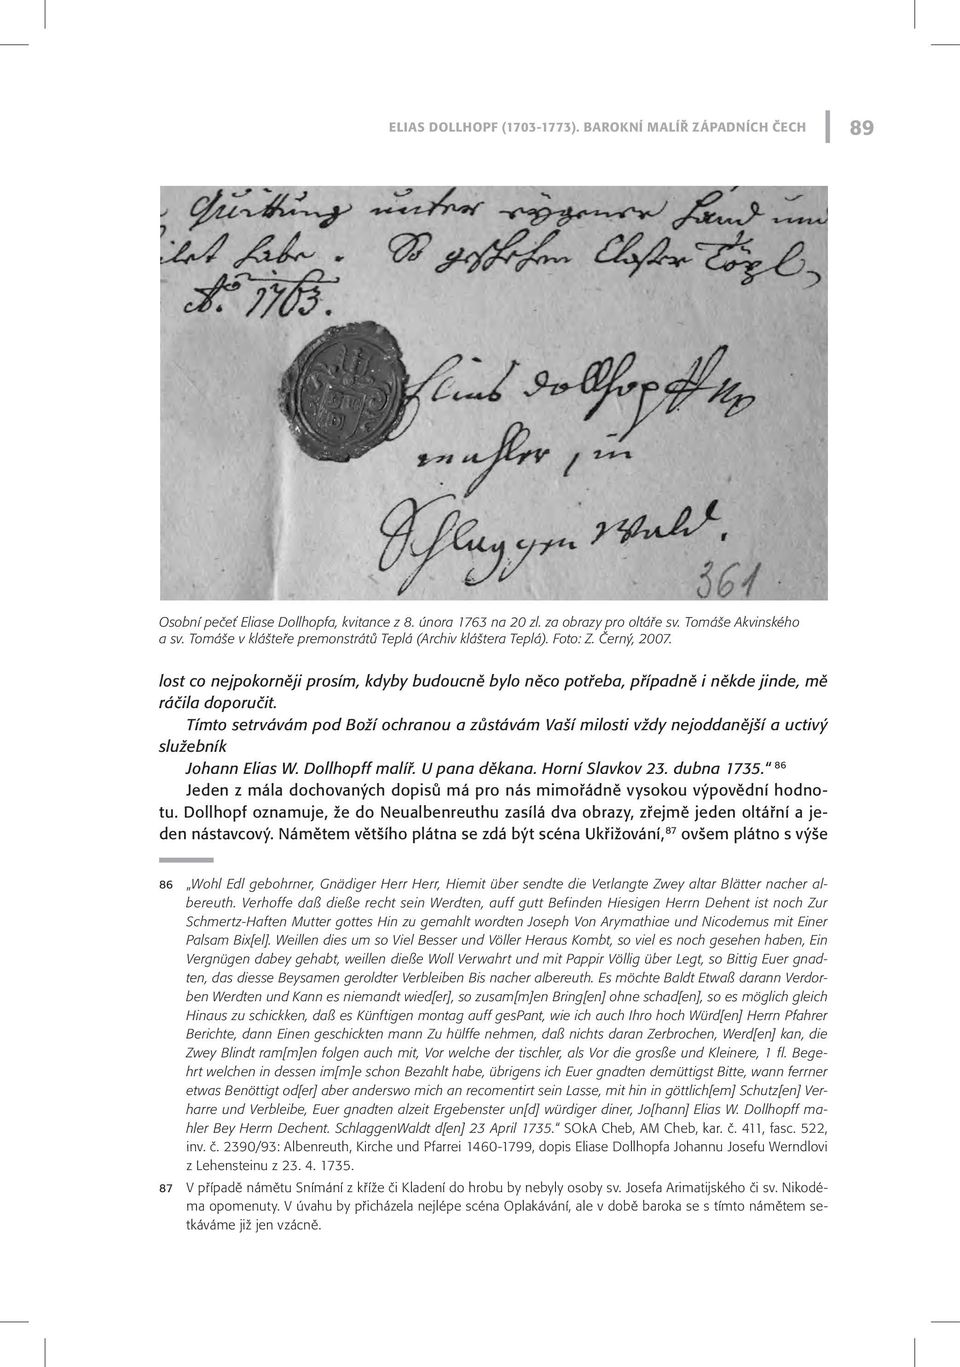 ELIAS DOLLHOPF (1703-1773). BAROKNÍ MALÍŘ ZÁPADNÍCH ČECH 89
Quittung unter eÿgener Hand und
habe. So geschehen Closter Töpl,
Aº. 1763.
Elias Dollhopff mp
mahler, in
Schlaggenwald.
361
Osobní pečeť Eliase Dollhopfa, kvitance z 8. února 1763 na 20 zl. za obrazy pro oltáře sv. Tomáše Akvinského
a sv. Tomáše v klášteře premonstrátů Teplá (Archiv kláštera Teplá). Foto: Z. Černý, 2007.
lost co nejpokorněji prosím, kdyby budoucně bylo něco potřeba, případně i někde jinde, mě
ráčila doporučit.
Tímto setrvávám pod Boží ochranou a zůstávám Vaší milosti vždy nejoddanější a uctivý
služebník
Johann Elias W. Dollhopff malíř. U pana děkana. Horní Slavkov 23. dubna 1735.“ 86
Jeden z mála dochovaných dopisů má pro nás mimořádně vysokou výpovědní hodno-
tu. Dollhopf oznamuje, že do Neualbenreuthu zasílá dva obrazy, zřejmě jeden oltářní a je-
den nástavcový. Námětem většího plátna se zdá být scéna Ukřižování,87 ovšem plátno s výše
86 „Wohl Edl gebohrner, Gnädiger Herr Herr, Hiemit über sendte die Verlangte Zwey altar Blätter nacher al-
bereuth. Verhoffe daß dieße recht sein Werdten, auff gutt Befinden Hiesigen Herrn Dehent ist noch Zur
Schmertz-Haften Mutter gottes Hin zu gemahlt wordten Joseph Von Arymathiae und Nicodemus mit Einer
Palsam Bix[el]. Weillen dies um so Viel Besser und Völler Heraus Kombt, so viel es noch gesehen haben, Ein
Vergnügen dabey gehabt, weillen dieße Woll Verwahrt und mit Pappir Völlig über Legt, so Bittig Euer gnad-
ten, das diesse Beysamen geroldter Verbleiben Bis nacher albereuth. Es möchte Baldt Etwaß darann Verdor-
ben Werdten und Kann es niemandt wied[er], so zusam[m]en Bring[en] ohne schad[en], so es möglich gleich
Hinaus zu schickken, daß es Künftigen montag auff gesPant, wie ich auch Ihro hoch Würd[en] Herrn Pfahrer
Berichte, dann Einen geschickten mann Zu hülffe nehmen, daß nichts daran Zerbrochen, Werd[en] kan, die
Zwey Blindt ram[m]en folgen auch mit, Vor welche der tischler, als Vor die große und Kleinere, 1 fl. Bege-
hrt welchen in dessen im[m]e schon Bezahlt habe, übrigens ich Euer gnadten demüttigst Bitte, wann ferrner
etwas Benöttigt od[er] aber anderswo mich an recomentirt sein Lasse, mit hin in göttlich[em] Schutz[en] Ver-
harre und Verbleibe, Euer gnadten alzeit Ergebenster un[d] würdiger diner, Jo[hann] Elias W. Dollhopff ma-
hler Bey Herrn Dechent. SchlaggenWaldt d[en] 23 April 1735.“ SOkA Cheb, AM Cheb, kar. č. 411, fasc. 522,
inv. č. 2390/93: Albenreuth, Kirche und Pfarrei 1460-1799, dopis Eliase Dollhopfa Johannu Josefu Werndlovi
z Lehensteinu z 23. 4. 1735.
87 V případě námětu Snímání z kříže či Kladení do hrobu by nebyly osoby sv. Josefa Arimatijského či sv. Nikodé-
ma opomenuty. V úvahu by přicházela nejlépe scéna Oplakávání, ale v době baroka se s tímto námětem se-
tkáváme již jen vzácně.